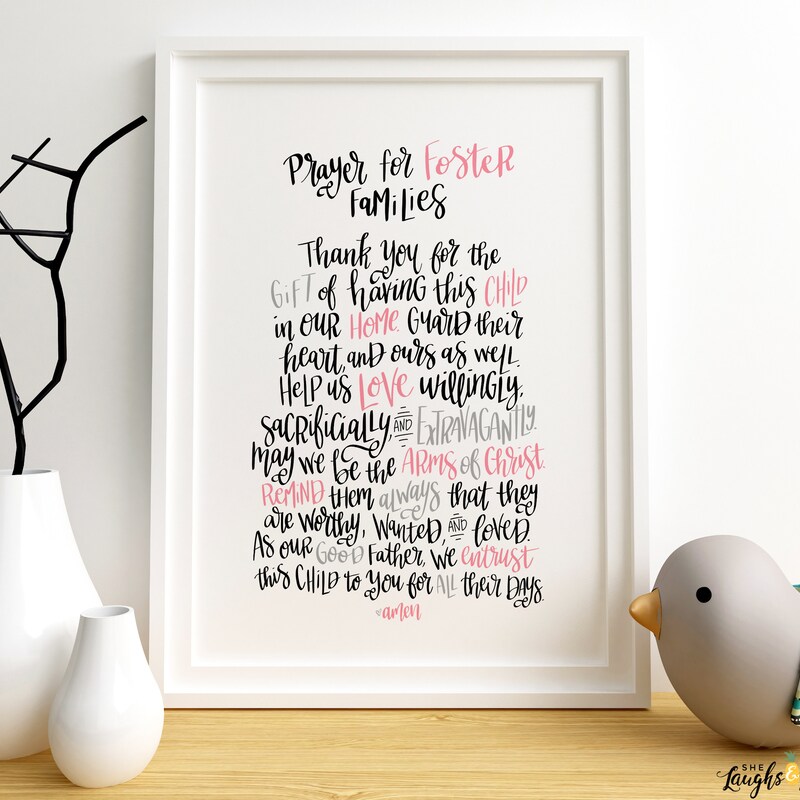 Prayer for Foster
Families
Thank You for the
Gift of having this Child
in our Home. Guard their
heart, and ours as well.
Help us Love willingly,
sacrificially, and Extravagantly.
May we be the Arms of Christ.
Remind them always that they
are worthy, wanted, and loved.
As our Good Father, we entrust
this Child to You for All their Days.
amen
She
Laughs &